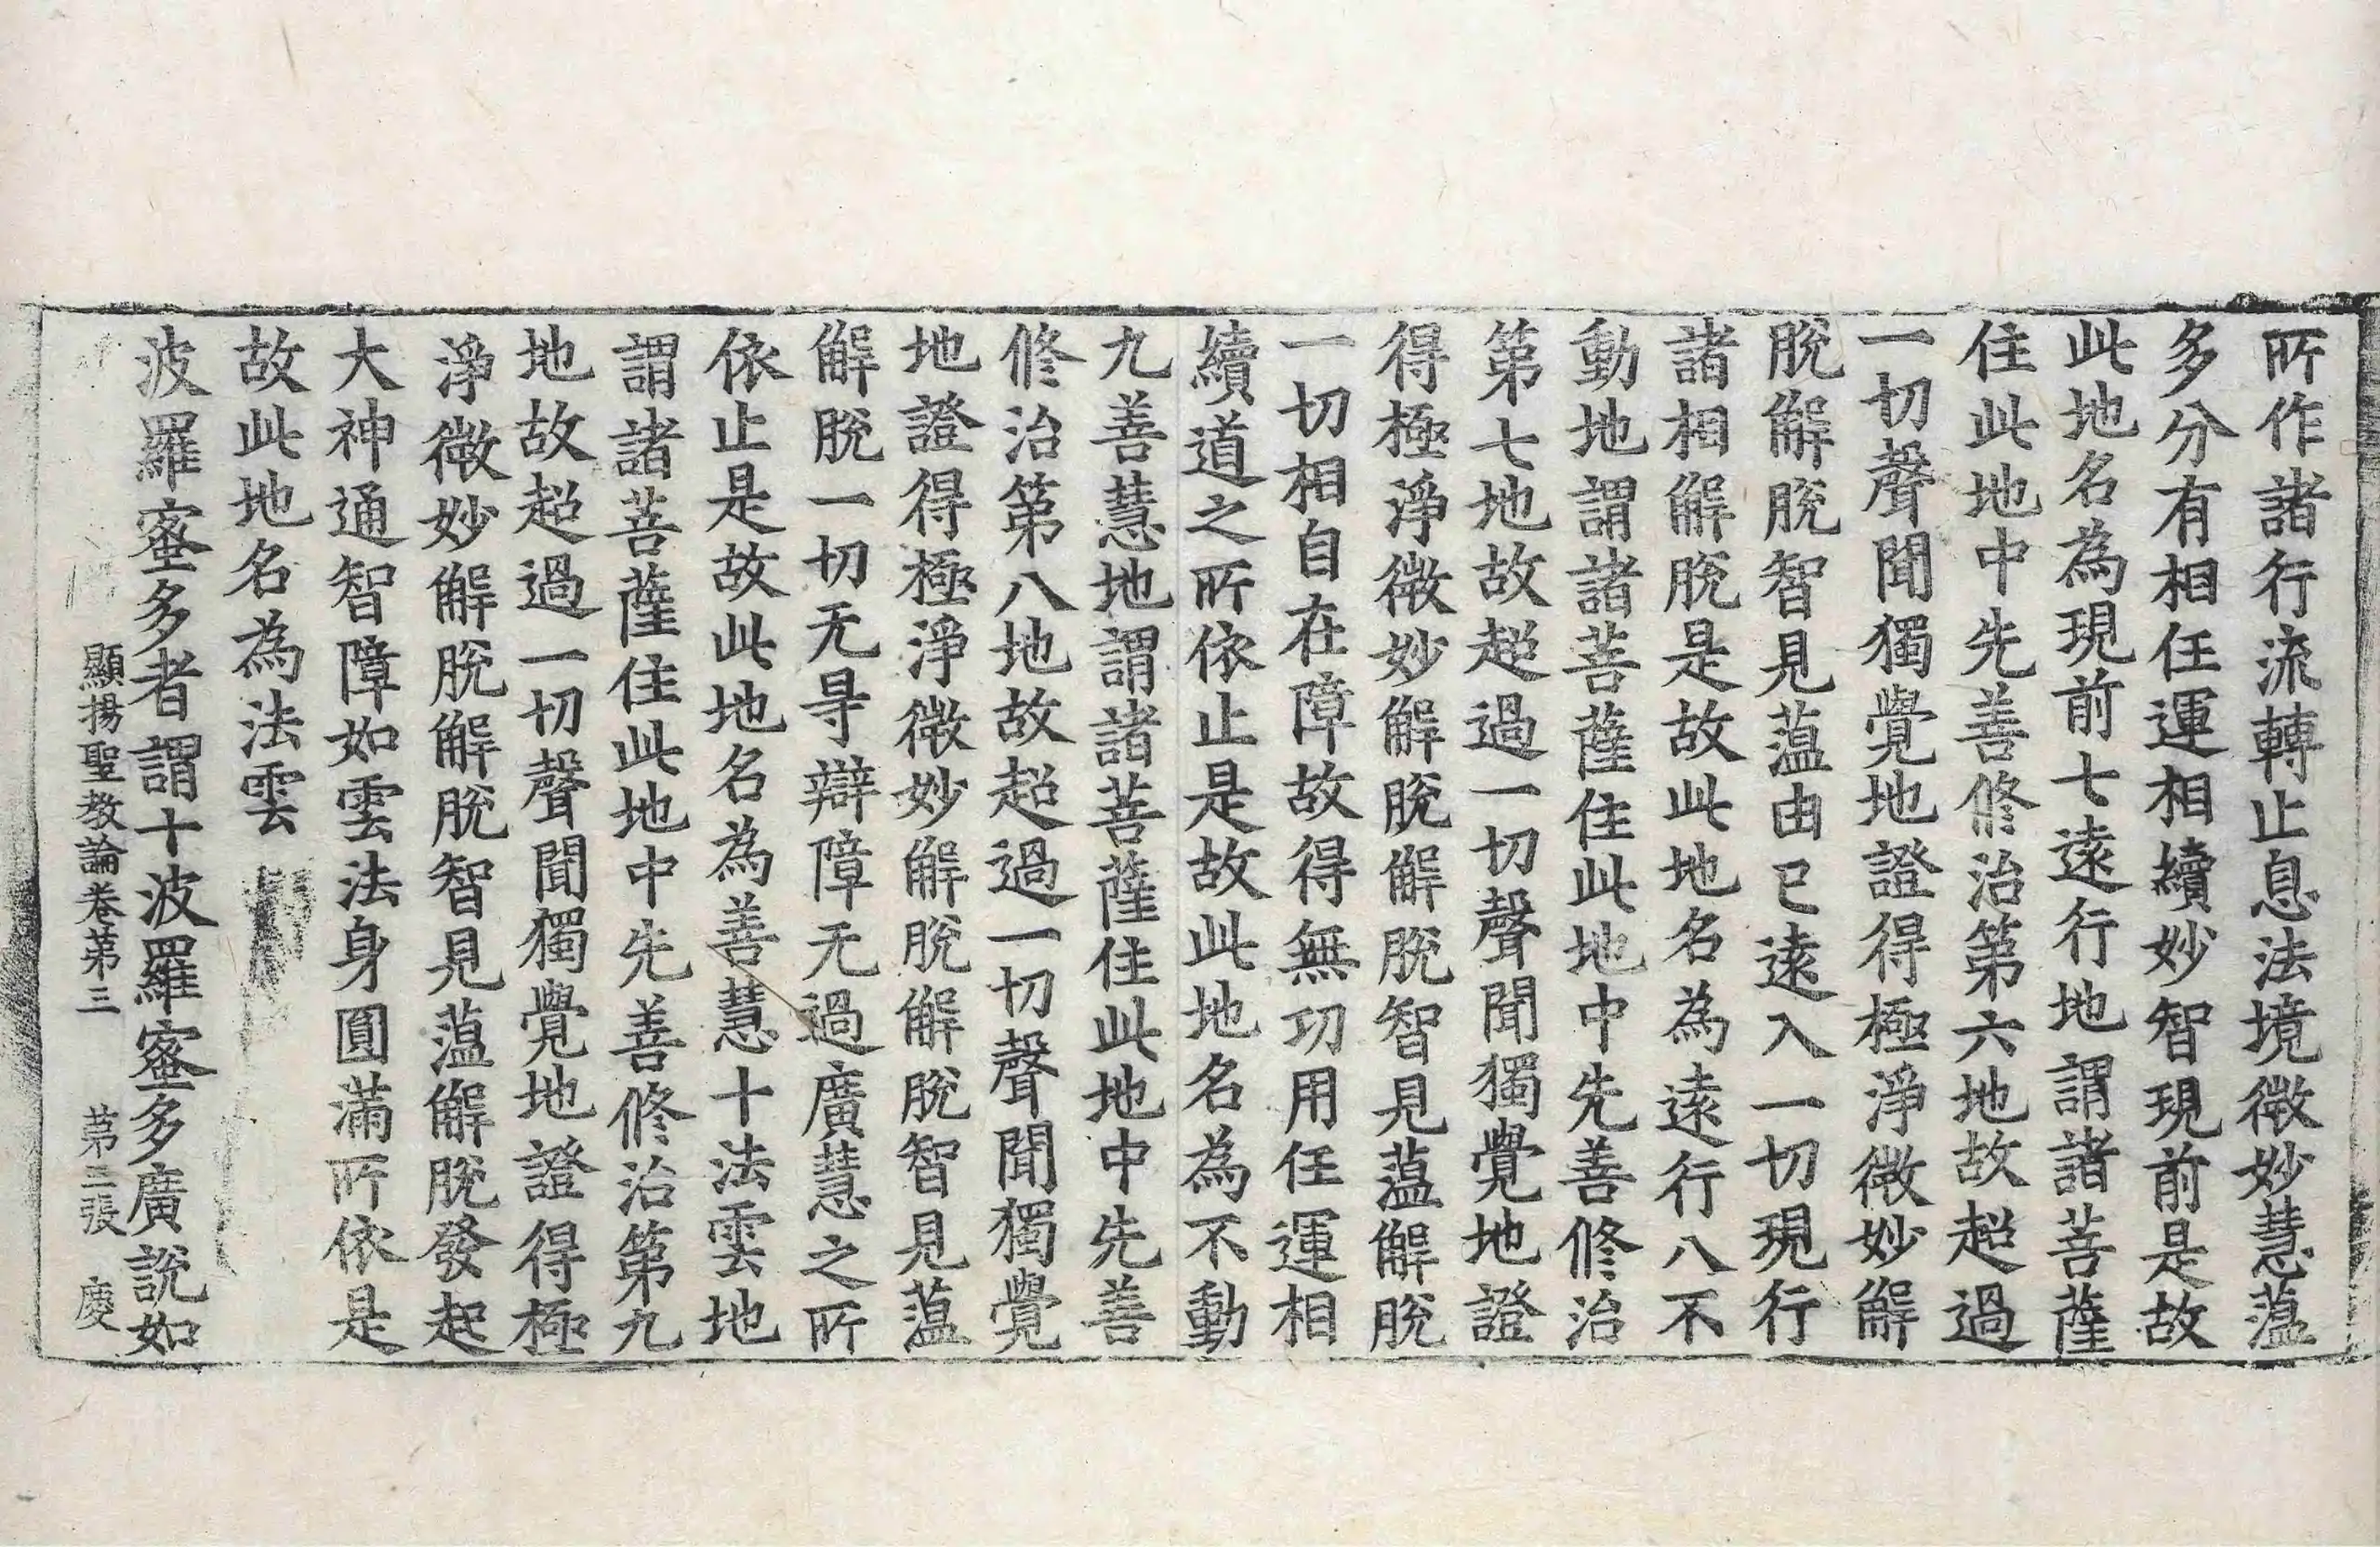 所作諸行流轉止息法境微妙慧薀
多分有相任運相續妙智現前是故
此地名為現前七遠行地謂諸菩薩
住此地中先善修治第六地故超過
一切聲聞獨覺地證得極淨微妙解
脫解脫智見薀由已遠入一切現行
諸相解脫是故此地名為遠行八不
動地謂諸菩薩住此地中先善修治
第七地故超過一切聲聞獨覺地證
得極淨微妙解脫解脫智見薀解脫
一切相自在障故得無功用任運相
續道之所依止是故此地名為不動
九善慧地謂諸菩薩住此地中先善
修治第八地故超過一切聲聞獨覺
地證得極淨微妙解脫解脫智見薀
解脫一切无㝵辯障无過廣慧之所
依止是故此地名為善慧十法雲地
謂諸菩薩住此地中先善修治第九
地故超過一切聲聞獨覺地證得極
淨微妙解脫解脫智見薀解脫發起
大神通智障如雲法身圓滿所依是
故此地名為法雲
波羅蜜多者謂十波羅蜜多廣說如
顯揚聖教論卷第三 第三張 慶